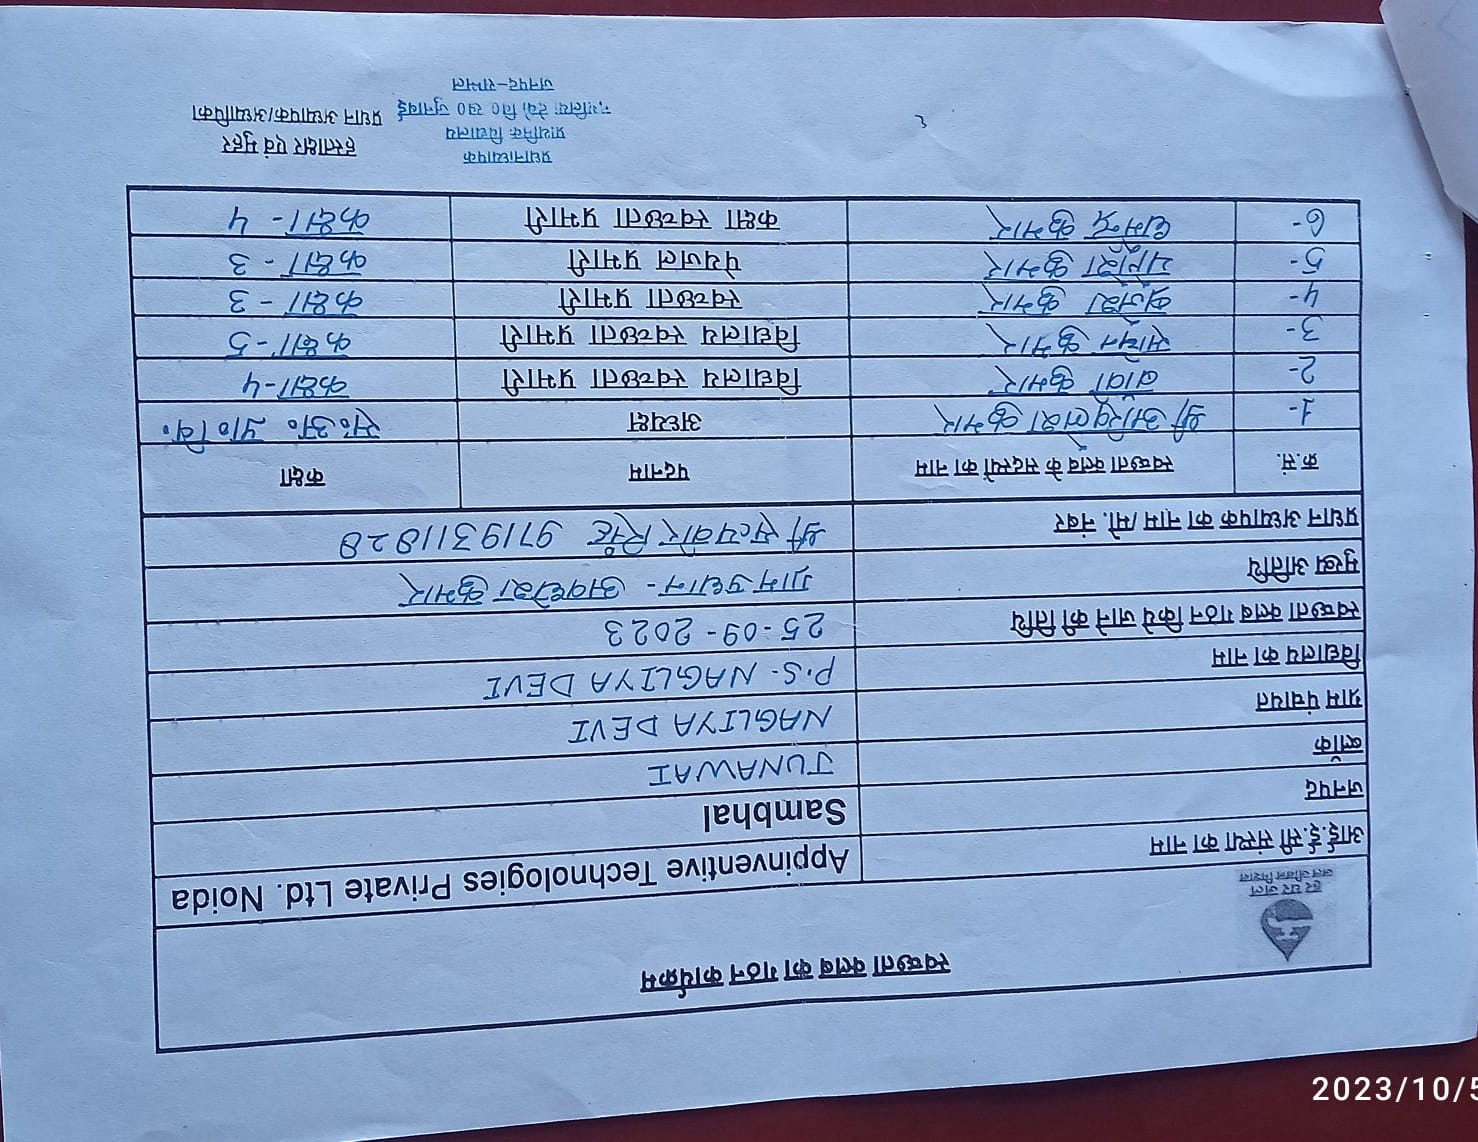 स्वच्छता क्लब का गठन कार्यक्रम
हर घर जल
जल जीवन मिशन
आई.ई.सी संस्था का नाम Appinventive Technologies Private Ltd. Noida
जनपद Sambhal
ब्लॉक JUNAWAI
ग्राम पंचायत NAGLIYA DEVI
विद्यालय का नाम P.S. NAGLIYA DEVI
स्वच्छता क्लब गठन किये जाने की तिथि 25-09-2023
मुख्य अतिथि ग्राम प्रधान - अवधेश कुमार
प्रधान अध्यापक का नाम /मो. नंबर श्री सत्यवीर सिंह 9719311828
क्र.सं. स्वच्छता क्लब के सदस्यों का नाम पदनाम कक्षा
1- श्री अखिलेश कुमार अध्यक्ष स०अ० प्रा० वि.
2- कुमार विद्यालय स्वच्छता प्रभारी कक्षा-4
3- मोहन कुमार विद्यालय स्वच्छता प्रभारी कक्षा-5
4- कुमार स्वच्छता प्रभारी कक्षा - 3
5- कुमार पेयजल प्रभारी कक्षा - 3
6- कुमार कक्षा स्वच्छता प्रभारी कक्षा - 4
हस्ताक्षर एवं मुहर
प्रधान अध्यापक/अध्यापिका
प्रधानाध्यापक
प्राथमिक विद्यालय
नगलिया देवी वि० ख० जुनावई
जनपद-सम्भल
2023/10/5